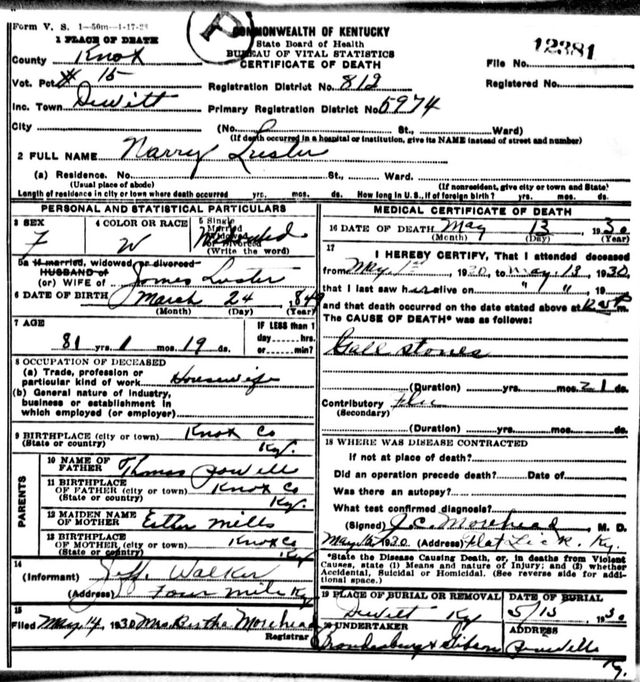 Form V. S. 1-50m-1-17-28
P
COMMONWEALTH OF KENTUCKY
State Board of Health
BUREAU OF VITAL STATISTICS
CERTIFICATE OF DEATH
File No. 12381
Registered No.
1 PLACE OF DEATH
County Knox
Vot. Pct. # 15
Registration District No. 812
Inc. Town Dewitt
Primary Registration District No. 5974
City (No. St., Ward)
(If death occurred in a hospital or institution, give its NAME instead of street and number)
2 FULL NAME Narry Luster
(a) Residence. No. St., Ward.
(Usual place of abode) (If nonresident, give city or town and State)
Length of residence in city or town where death occurred yrs. mos. ds. How long in U. S., if of foreign birth? yrs. mos. ds.
PERSONAL AND STATISTICAL PARTICULARS
3 SEX F
4 COLOR OR RACE W
5 Single Married Widowed or Divorced
(Write the word)
5a If married, widowed or divorced
HUSBAND of
(or) WIFE of James Luster
6 DATE OF BIRTH March 24 1849
(Month) (Day) (Year)
7 AGE 81 yrs. 1 mos. 19 ds.
IF LESS than 1 day....hrs. or....min?
8 OCCUPATION OF DECEASED
(a) Trade, profession or particular kind of work Housewife
(b) General nature of industry, business or establishment in which employed (or employer)
9 BIRTHPLACE (city or town) Knox Co
(State or country) Ky.
PARENTS
10 NAME OF FATHER Thomas Powell
11 BIRTHPLACE OF FATHER (city or town) Knox Co
(State or country) Ky.
12 MAIDEN NAME OF MOTHER Esther Mills
13 BIRTHPLACE OF MOTHER (city or town) Knox Co
(State or country) Ky
14
(Informant) Jeff Walker
(Address) Four Mile Ky
15
Filed May 14, 1930 Mrs Bertha Morehead
Registrar
MEDICAL CERTIFICATE OF DEATH
16 DATE OF DEATH May 13 1930
(Month) (Day) (Year)
17
I HEREBY CERTIFY, That I attended deceased
from May 1st, 1930, to May, 13, 1930,
that I last saw her alive on " " 19
and that death occurred on the date stated above at m.
The CAUSE OF DEATH* was as follows:
Gall stones
(Duration) yrs. mos. 21 ds.
Contributory flu
(Secondary)
(Duration) yrs. mos. ds.
18 WHERE WAS DISEASE CONTRACTED
If not at place of death?
Did an operation precede death? Date of
Was there an autopsy?
What test confirmed diagnosis?
(Signed) J.C. Morehead, M. D.
May 1930 (Address) Flat Lick. Ky.
*State the Disease Causing Death, or, in deaths from Violent
Causes, state (1) Means and nature of Injury; and (2) whether
Accidental, Suicidal or Homicidal. (See reverse side for addi-
tional space.)
19 PLACE OF BURIAL OR REMOVAL Dewitt Ky
DATE OF BURIAL 5/15 1930
20 UNDERTAKER
ADDRESS Powells
Ky.